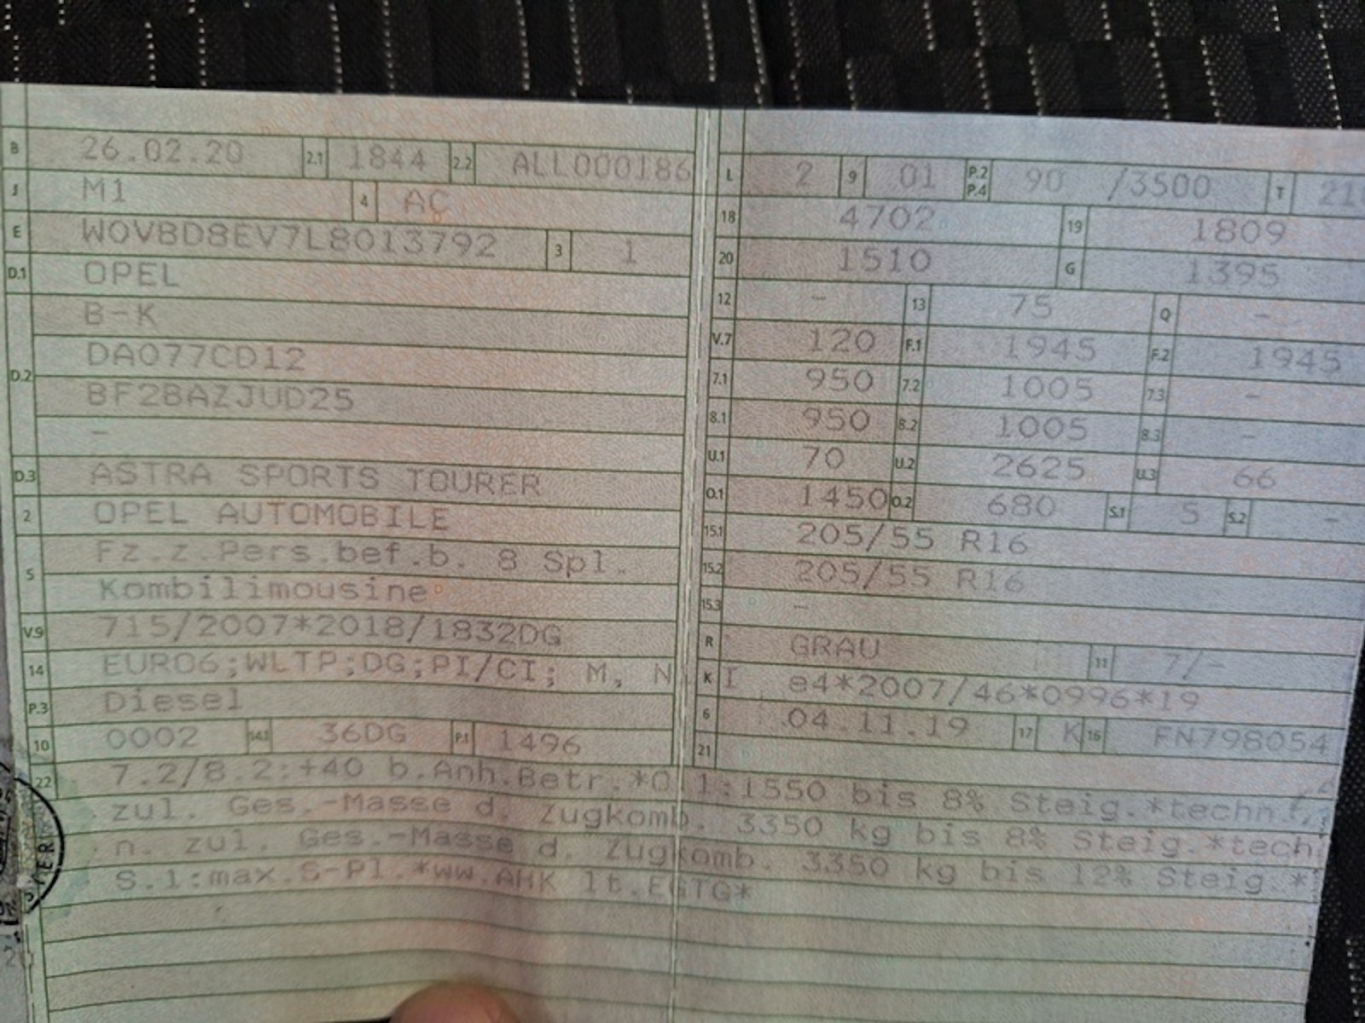 B 26.02.20 2.1 1844 2.2 ALL000186
J M1 4 AC
E W0VBD8EV7L8013792 3 1
D.1 OPEL
B-K
D.2 DA077CD12
BF28AZJUD25
-
D.3 ASTRA SPORTS TOURER
2 OPEL AUTOMOBILE
5 Fz.z.Pers.bef.b. 8 Spl.
Kombilimousine
V.9 715/2007*2018/1832DG
14 EURO6;WLTP;DG;PI/CI; M, N I
P.3 Diesel
10 0002 14.1 36DG P.1 1496
L 2 9 01 P.2 P.4 90 /3500 T 21
18 4702 19 1809
20 1510 G 1395
12 - 13 75 Q -
V.7 120 F.1 1945 F.2 1945
7.1 950 7.2 1005 7.3 -
8.1 950 8.2 1005 8.3 -
U.1 70 U.2 2625 U.3 66
O.1 1450 O.2 680 S.1 5 S.2 -
15.1 205/55 R16
15.2 205/55 R16
15.3 -
R GRAU 11 7/-
K e4*2007/46*0996*19
6 04.11.19 17 K 16 FN798054
21
22 7.2/8.2:+40 b.Anh.Betr.*O.1:1550 bis 8% Steig.*techn.
zul. Ges.-Masse d. Zugkomb. 3350 kg bis 8% Steig.*tech
n. zul. Ges.-Masse d. Zugkomb. 3350 kg bis 12% Steig.*
S.1:max.S-Pl.*ww.AHK lt.EGTG*